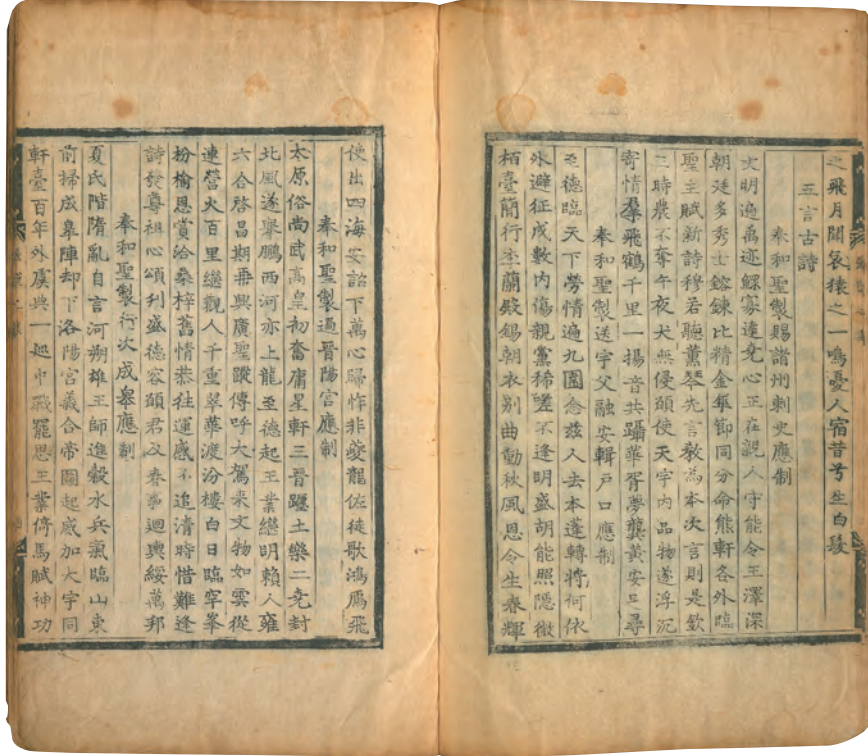 之飛月聞哀猿之一鳴憂人宿昔兮生白髮
五言古詩
奉和聖製賜諸州刺史應制
文明遍禹迹鰥寡達堯心正在親人守能令王澤深
朝廷多秀士鎔鍊比精金犀節同分命熊軒各外臨
聖主賦新詩穆若聽薰琴先言教為本次言則是欽
三時農不奪午夜犬無侵願使天宇內品物遂浮沉
寄情羣飛鶴千里一揚音共躡華胥夢龔黃安足尋
奉和聖製送宇文融安輯戶口應制
至德臨天下勞情遍九圍念茲人去本蓬轉將何依
外避征戍數內傷親黨稀嗟不逢明盛胡能照隱微
栢臺簡行李蘭殿錫朝衣別曲動秋風恩令生春輝
使出四海安詔下萬心歸怍非夔龍佐徒歌鴻鴈飛
奉和聖製過晉陽宮應制
太原俗尚武高皇初奮庸星軒三晉躔土樂二堯封
北風遂舉鵬西河亦上龍至德起王業繼明賴人雍
六合啓昌期再興廣聖蹤傳呼大駕來文物如雲從
連營火百里縱觀人千重翠華渡汾樓白日臨窂峯
枌榆恩賞洽桑梓舊情恭往運感不追清時惜難逢
詩發尊祖心頌刊盛德容願君及春事迴輿綏萬邦
奉和聖製行次成皋應制
夏氏階隋亂自言河朔雄王師進穀水兵氣臨山東
前掃成皋陣却下洛陽宮義合帝圖起威加大宇同
軒臺百年外虞典一巡中戰罷思王業倚馬賦神功